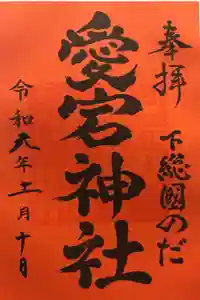 奉拝
下総国のだ
愛宕神社
令和元年十一月十日